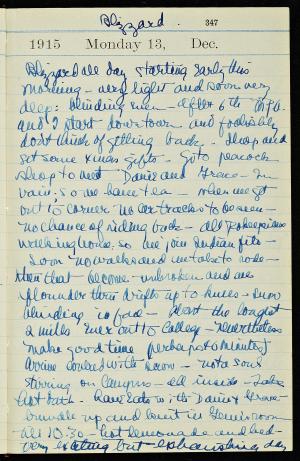 Blizzard.
347
1915 Monday 13, Dec.
Blizzard all day starting early this
morning - very light and soon very
deep: blinding snow - after 6th
and I start downtown and foolishly
don't think of getting back. Shop and
get some xmas gifts - go to peacock
shop to meet Daniel and Grace - in
vain: so we have tea - when we get
out to corner no car tracks to be seen -
no chance of riding back - all Po'keepsie
walking home. so we join Indian file -
Soon no walks and we take to road -
then that become unbroken and we
flounder thro' drifts up to knees - snow
blinding in face - the longest
2 miles ever out to College - Nevertheless
make good time perhaps minutes
Arrive covered with snow - not a soul
stirring on campus - all inside - take
hot bath. have late Daniel & Grace -
bundle up and room
till 10:30 - hot lemonade and bed -
very exciting but exhausting day